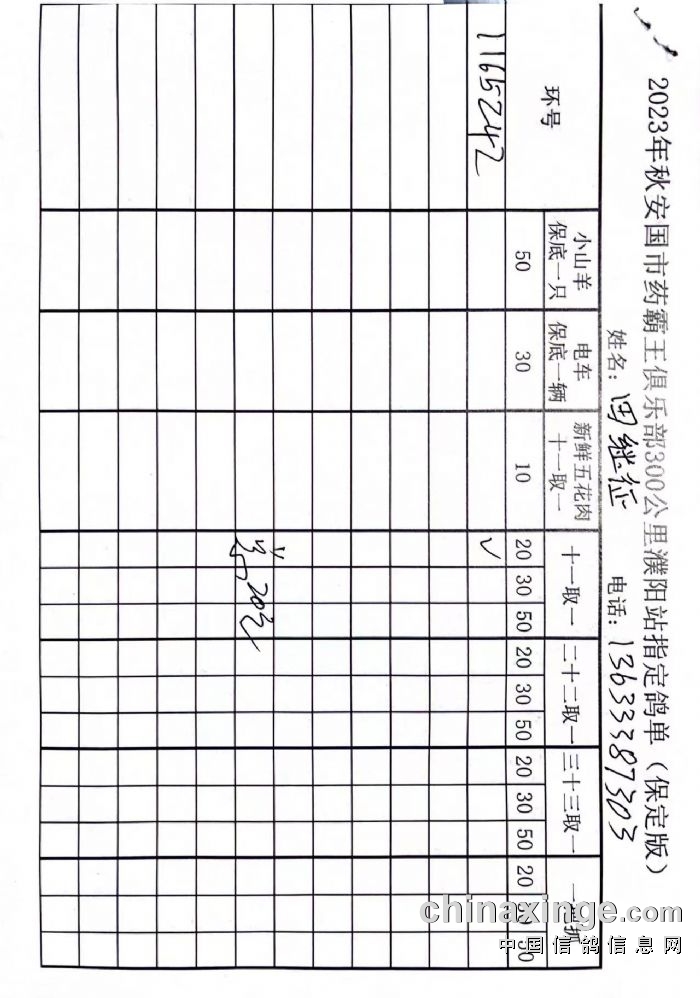 2023年秋安国市药霸王俱乐部300公里濮阳站指定鸽单（保定版）
姓名：田继征 电话：13633387303
环号 小山羊保底一只 电车保底一辆 新鲜五花肉十一取一 十一取一 二十二取一 三十三取一
50 30 10 20 30 50 20 30 50 20 30 50 20 30 50
1165242 √
共20元
chinaxinge.com
中国信鸽信息网